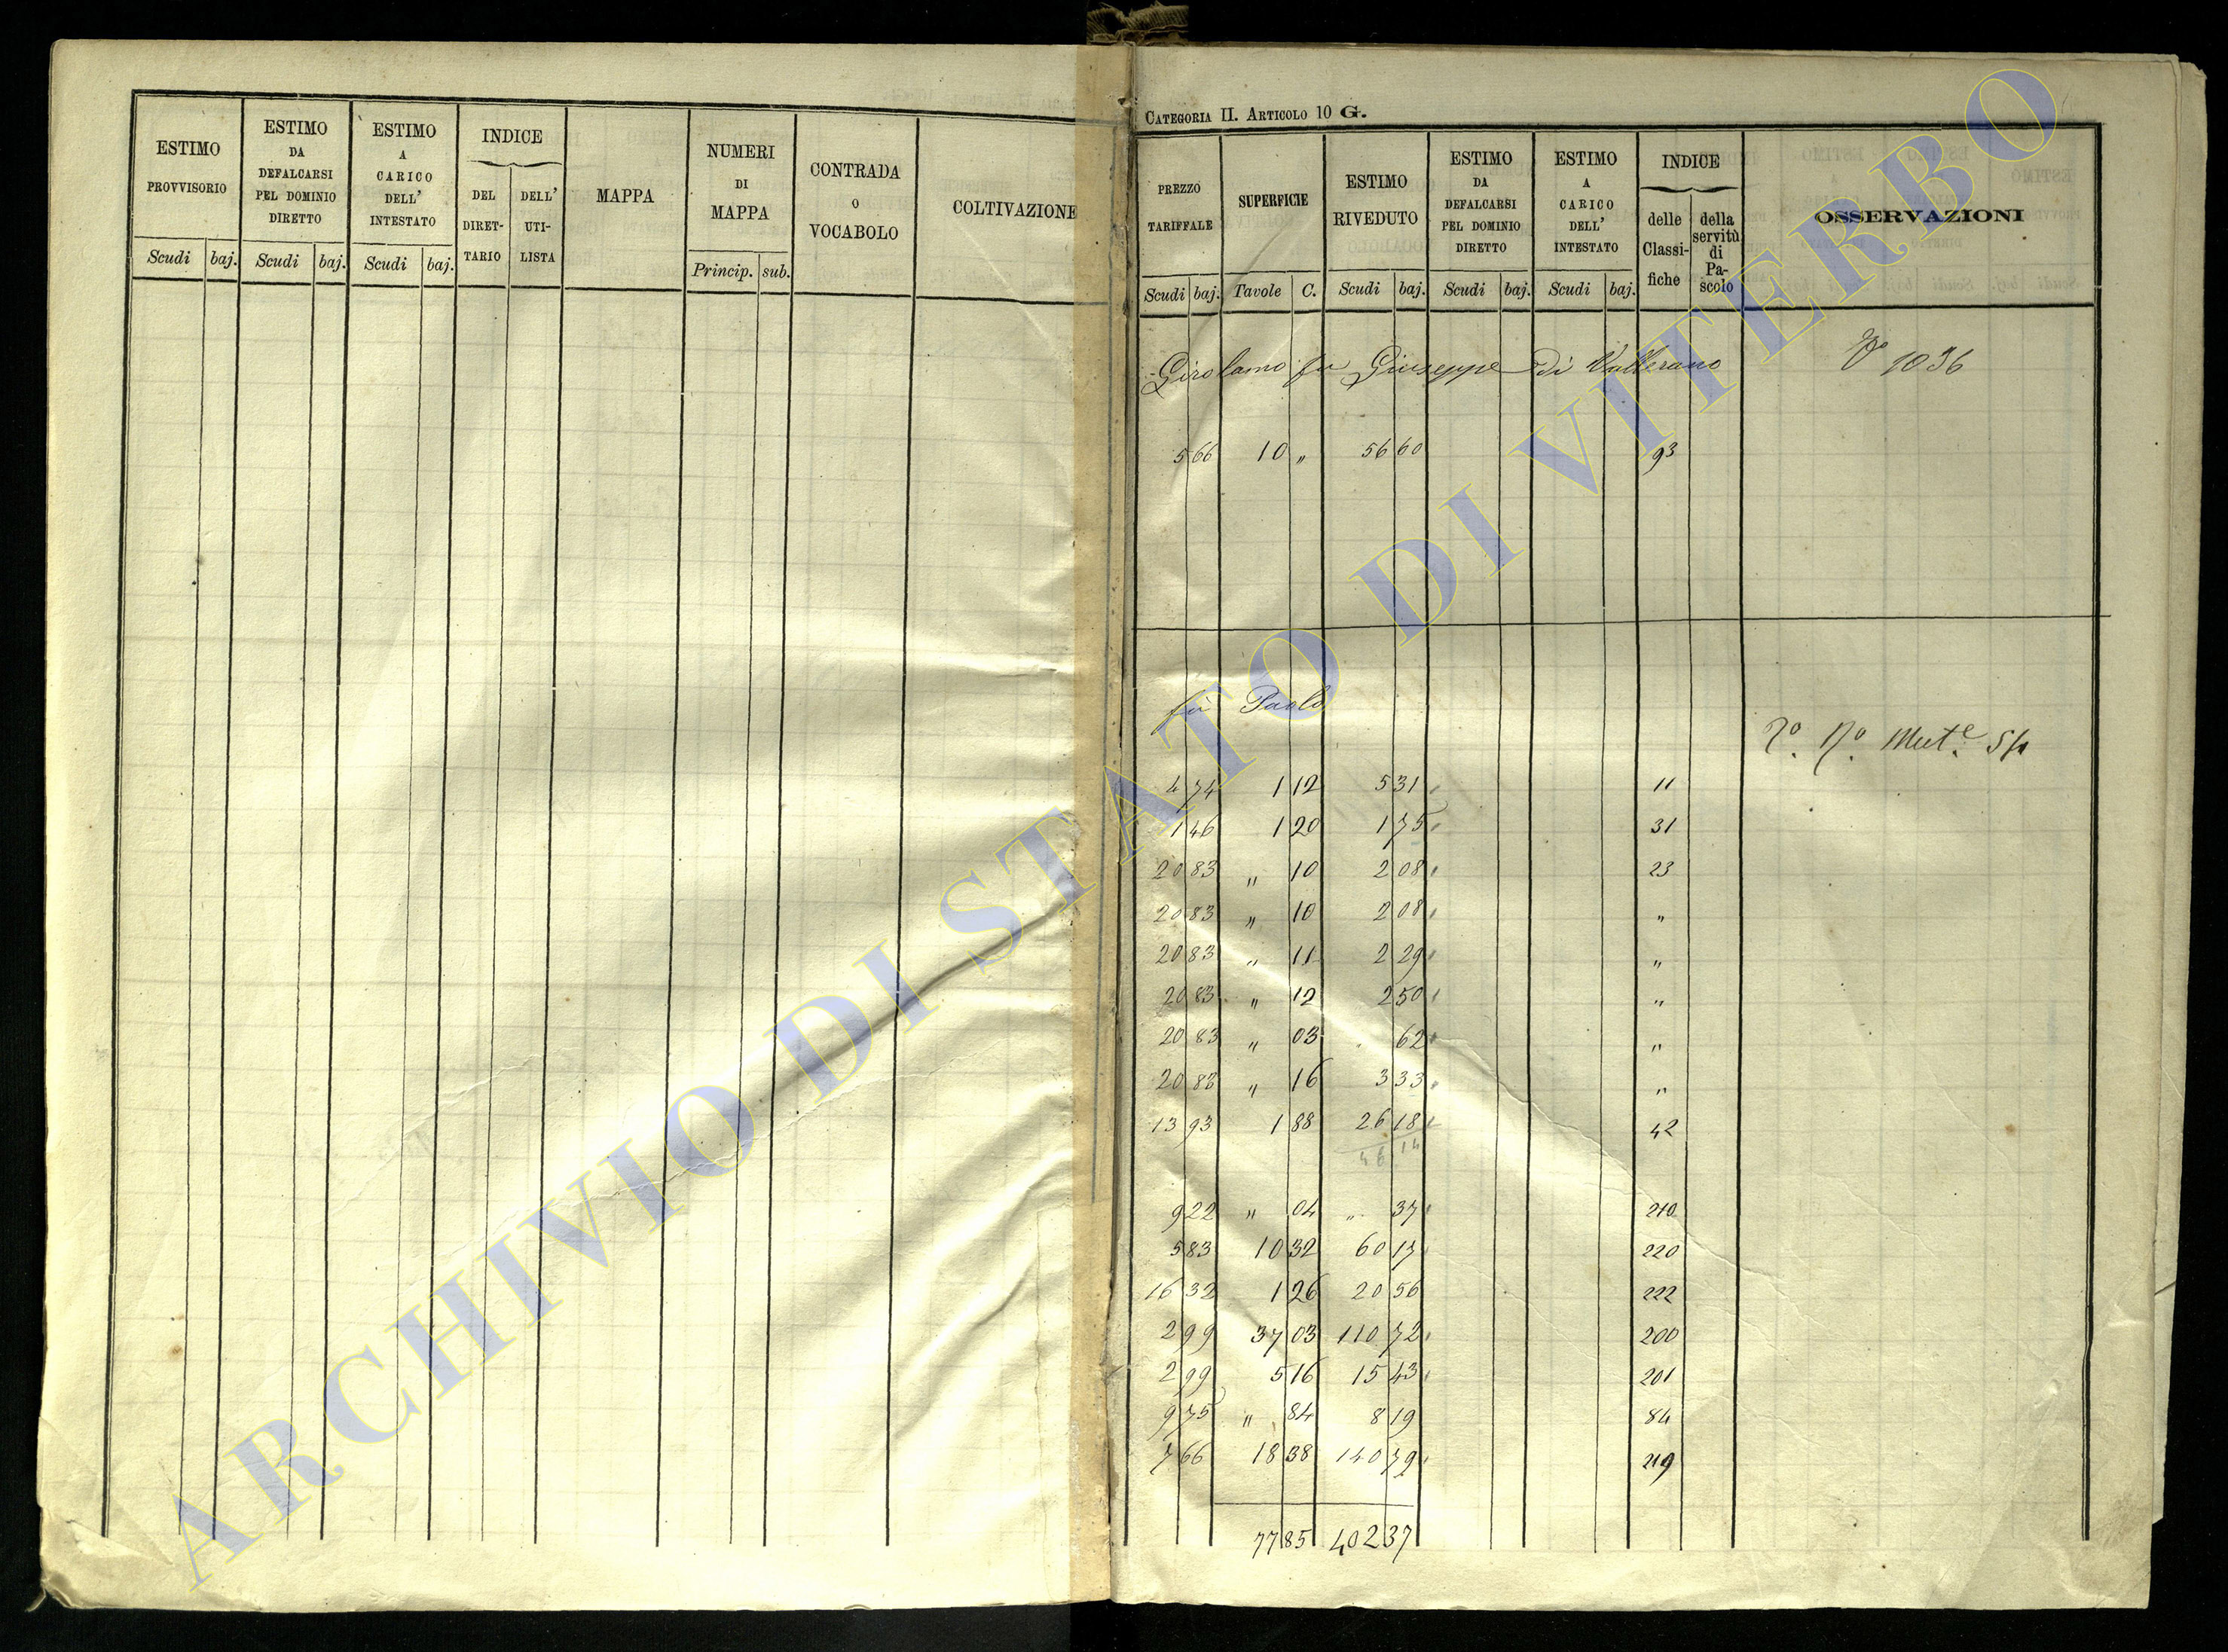 ESTIMO PROVVISORIO Scudi baj.
ESTIMO DA DEFALCARSI PEL DOMINIO DIRETTO Scudi baj.
ESTIMO A CARICO DELL' INTESTATO Scudi baj.
INDICE DEL DIRET- TARIO DELL' UTI- LISTA
MAPPA
NUMERI DI MAPPA Princip. sub.
CONTRADA O VOCABOLO
COLTIVAZIONE
CATEGORIA II. ARTICOLO 10 G.
PREZZO TARIFFALE Scudi baj.
SUPERFICIE Tavole C.
ESTIMO RIVEDUTO Scudi baj.
ESTIMO DA DEFALCARSI PEL DOMINIO DIRETTO Scudi baj.
ESTIMO A CARICO DELL' INTESTATO Scudi baj.
INDICE delle Classi- fiche della servitù di Pa- scolo
OSSERVAZIONI
Girolamo fu Giuseppe di Vallerano 1036
5 66 10 " 56 60 93
fu Paolo
4 74 1 12 5 31 11
1 46 1 20 1 75 31
20 83 " 10 2 08 23
20 83 " 10 2 08 "
20 83 " 11 2 29 "
20 83 " 12 2 50 "
20 83 " 03 " 62 "
20 83 " 16 3 33 "
13 93 1 88 26 18 42
46 14
9 22 " 04 " 37 210
5 83 10 32 60 17 220
16 32 1 26 20 56 222
2 99 37 03 110 72 200
2 99 5 16 15 43 201
9 75 " 84 8 19 84
7 66 18 38 140 79 219
77 85 402 37
ARCHIVIO DI STATO DI VITERBO